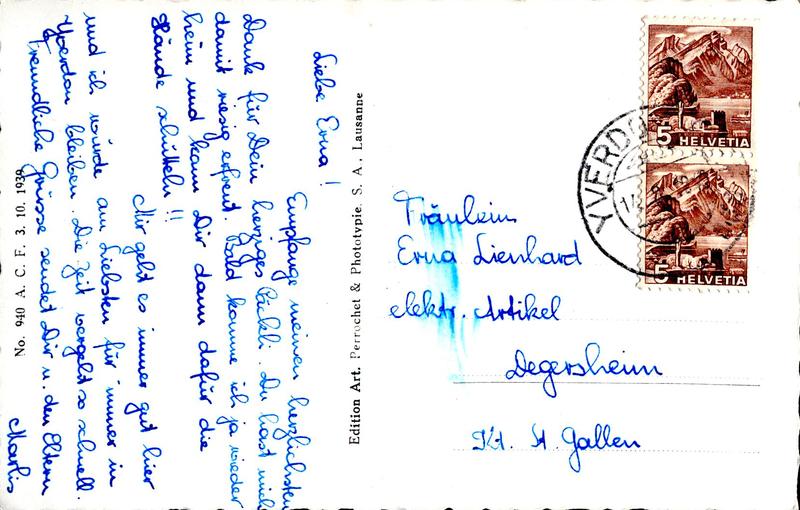 Liebe Erna!
Empfange meinen herzlichsten
Dank für Dein herziges Päckli. Du hast mich
damit riesig erfreut. Bald komme ich ja wieder
heim und kann Dir dann dafür die
Hände schütteln!!
Mir geht es immer gut hier
und ich würde am Liebsten für immer in
Yverdon bleiben. Die Zeit vergeht so schnell.
Freundliche Grüsse sendet Dir u. den Eltern
Marlis
No. 940 A. C. F. 3. 10. 1939
Edition Art. Perrochet & Phototypie. S. A., Lausanne
Fräulein
Erna Lienhard
elektr. Artikel
Degersheim
Kt. St. Gallen
5 HELVETIA
5 HELVETIA
YVERDO